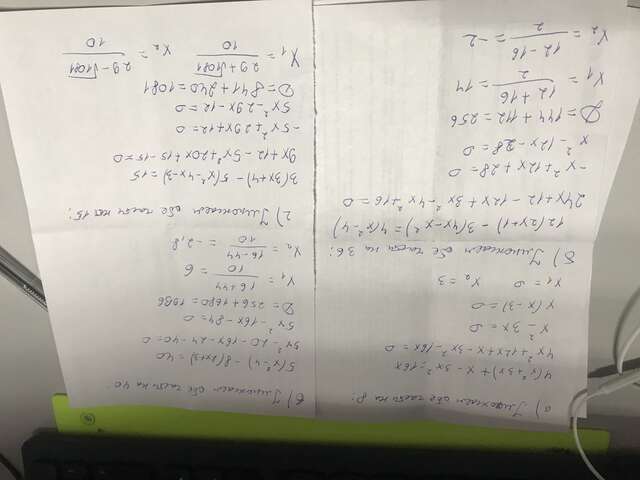 а) Умножаем обе части на 8:
4(x²+3x)+x-3x²=16x
4x²+12x+x-3x²-16x=0
x²-3x=0
x(x-3)=0
x₁=0 x₂=3
б) Умножаем обе части на 36:
12(2x+1)-3(4x-x²)=4(x²-4)
24x+12-12x+3x²-4x²+16=0
-x²+12x+28=0
x²-12x-28=0
D=144+112=256
x₁=12+16/2=14
x₂=12-16/2=-2
в) Умножаем обе части на 40:
5(x²-4)-8(2x+3)=40
5x²-20-16x-24-40=0
5x²-16x-84=0
D=256+1680=1936
x₁=16+44/10=6
x₂=16-44/10=-2,8
г) Умножаем обе части на 15:
3(3x+4)-5(x²-4x-3)=15
9x+12-5x²+20x+15-15=0
-5x²+29x+12=0
5x²-29x-12=0
D=841+240=1081
x₁=29+√1081/10
x₂=29-√1081/10